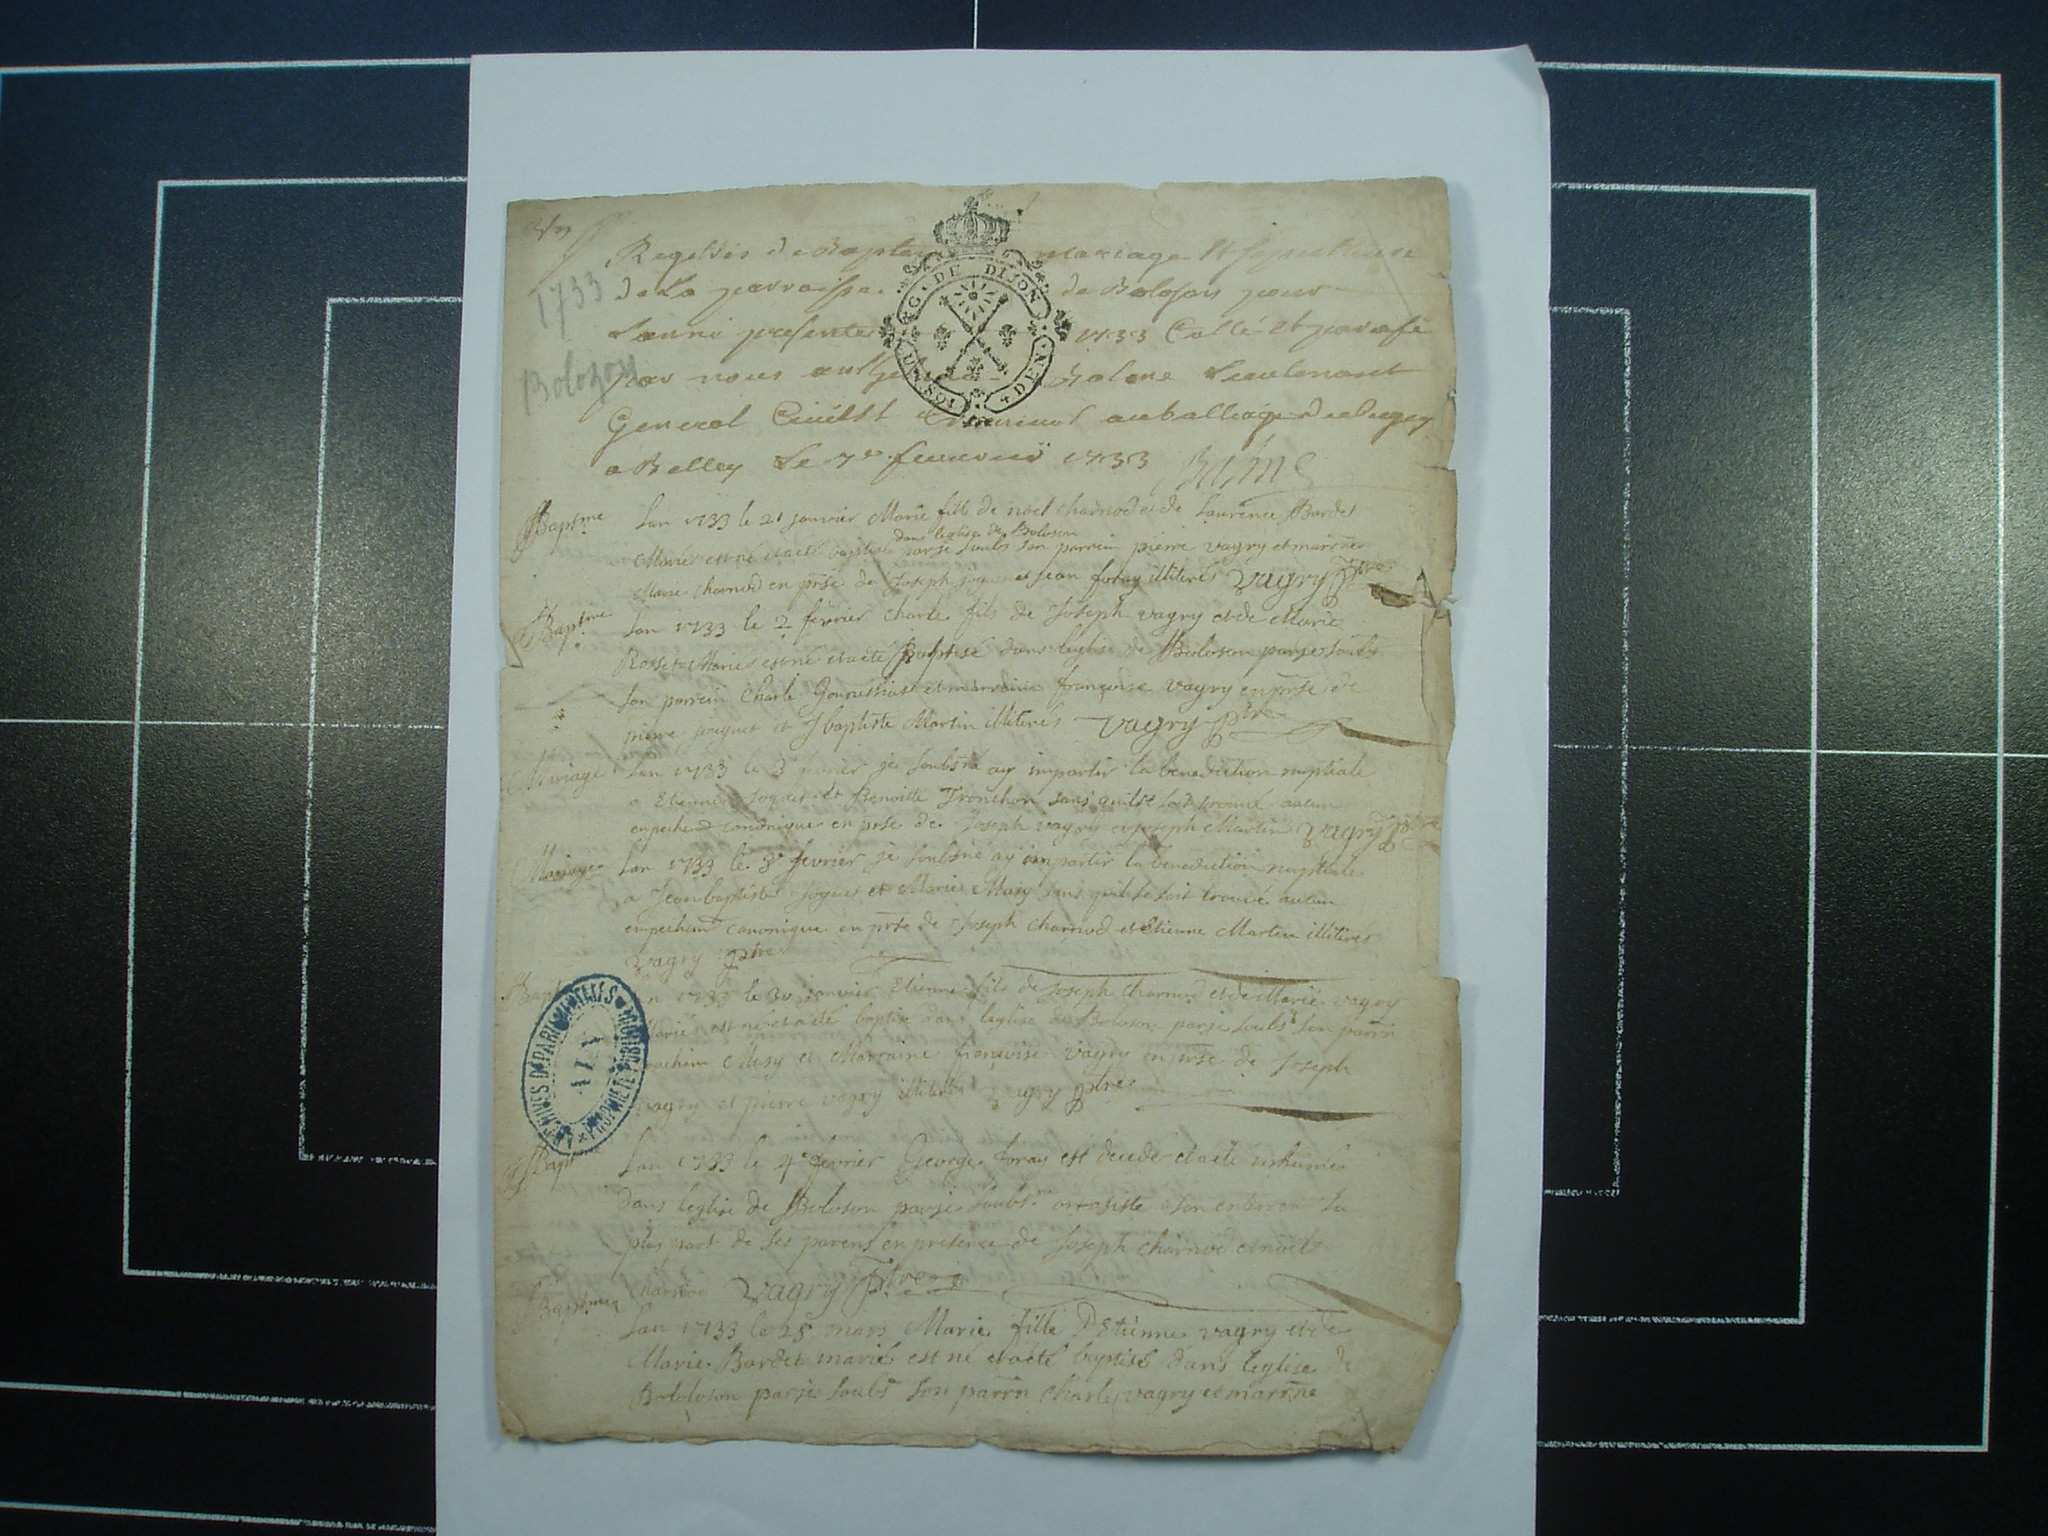 1733
Bolozon
G. DE DIJON
UN SOL
4 DEN
Registre de Baptesme mariage et sepulture
de La parroisse de Boloson pour
Lanné presente 1733 Collé et parafé
par nous Balme Lieutenant
General Civil et Criminel au balliage de Bugey
a Belley Le 7e feuvrier 1733
Baptme Lan 1733 le 21 janvier Marie fille de noel charnod et de Laurence Bardet
dans leglise de Boloson
Mariés est né et a eté baptisé par je soubs son parrein pierre vagry et marrne
Marie charnod en prse de Joseph et jean foray illiterés vagry ptre
Baptme Lan 1733 le 2 février charle fils de Joseph vagry et de Marie
Rosset Mariés est né et a eté Baptisé dans leglise de Boloson par je soubs
son parrein charle et marraine françoise vagry en prse de
pierre et Jbaptiste Martin illiterés vagry ptre
Mariage Lan 1733 le 3 je soubsné ay imparti la benediction nuptiale
a Etienne Jogues et Benoitte Tronchon sans quil se soit trouvé aucun
empechemt canonique en prse de Joseph vagry et joseph Martin vagry ptre
Mariage Lan 1733 le 3e fevrier je soubsné ay imparti la benediction nuptiale
a Jean baptiste Jogues et Marie Masy sans quil se soit trouvé aucun
empechemt canonique en prse de Joseph charnod et Etienne Martin illiterés
vagry ptre
Bapt Lan 1733 le 30 janvier Etienne fils de Joseph charnod et de Marie vagry
Mariés est né et a eté baptisé dans leglise de Boloson par je soubs son parrin
Masy et Marraine françoise vagry en prse de Joseph
vagry et pierre vagry illiterés vagry ptre
ARCHIVES DÉPARTEMENTALES
AIN
PROPRIÉTÉ PUBLIQUE
Bapt Lan 1733 le 4e fevrier George foray est decedé et a eté inhumé
dans leglise de Boloson par je soubs a son enterrem la
plus part de ses parens en presence de Joseph charnod et noel
charnod vagry ptre
Baptme Lan 1733 le 25 mars Marie fille D'Etienne vagry et de
Marie Bardet mariés est né et a eté baptisé dans leglise de
Bololoson par je soubs son parrin charle vagry et marrne